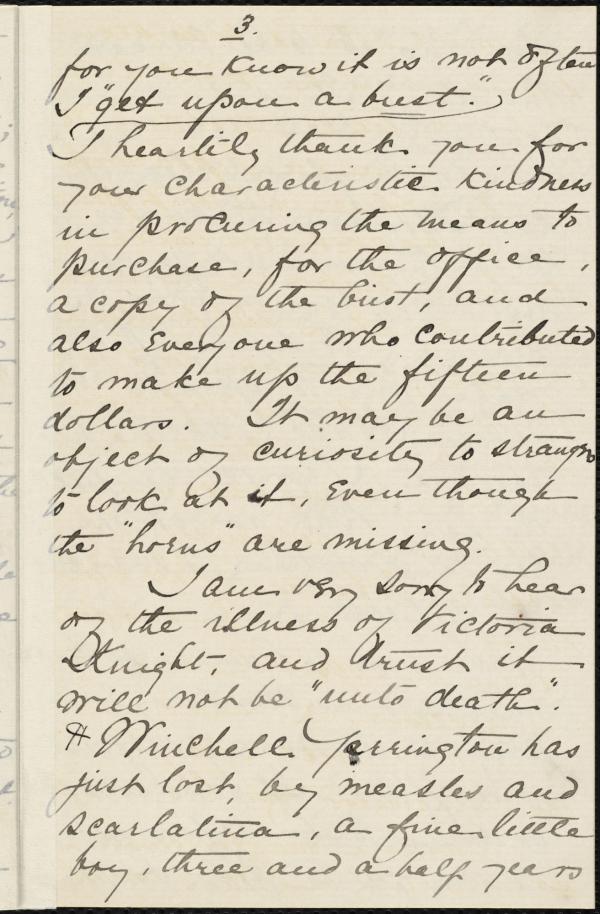 3.
for you know it is not often
I "get upon a bust."
I heartily thank you for
your characteristic kindness
in procuring the means to
purchase, for the office,
a copy of the bust, and
also everyone who contributed
to make up the fifteen
dollars. It may be an
object of curiosity to strangers
to look at it, even though
the "horns" are missing.
I am very sorry to hear
of the illness of Victoria
Knight, and trust it
will not be "unto death".
Winchell Yerrington has
just lost, by measles and
scarlatina, a fine little
boy, three and a half years